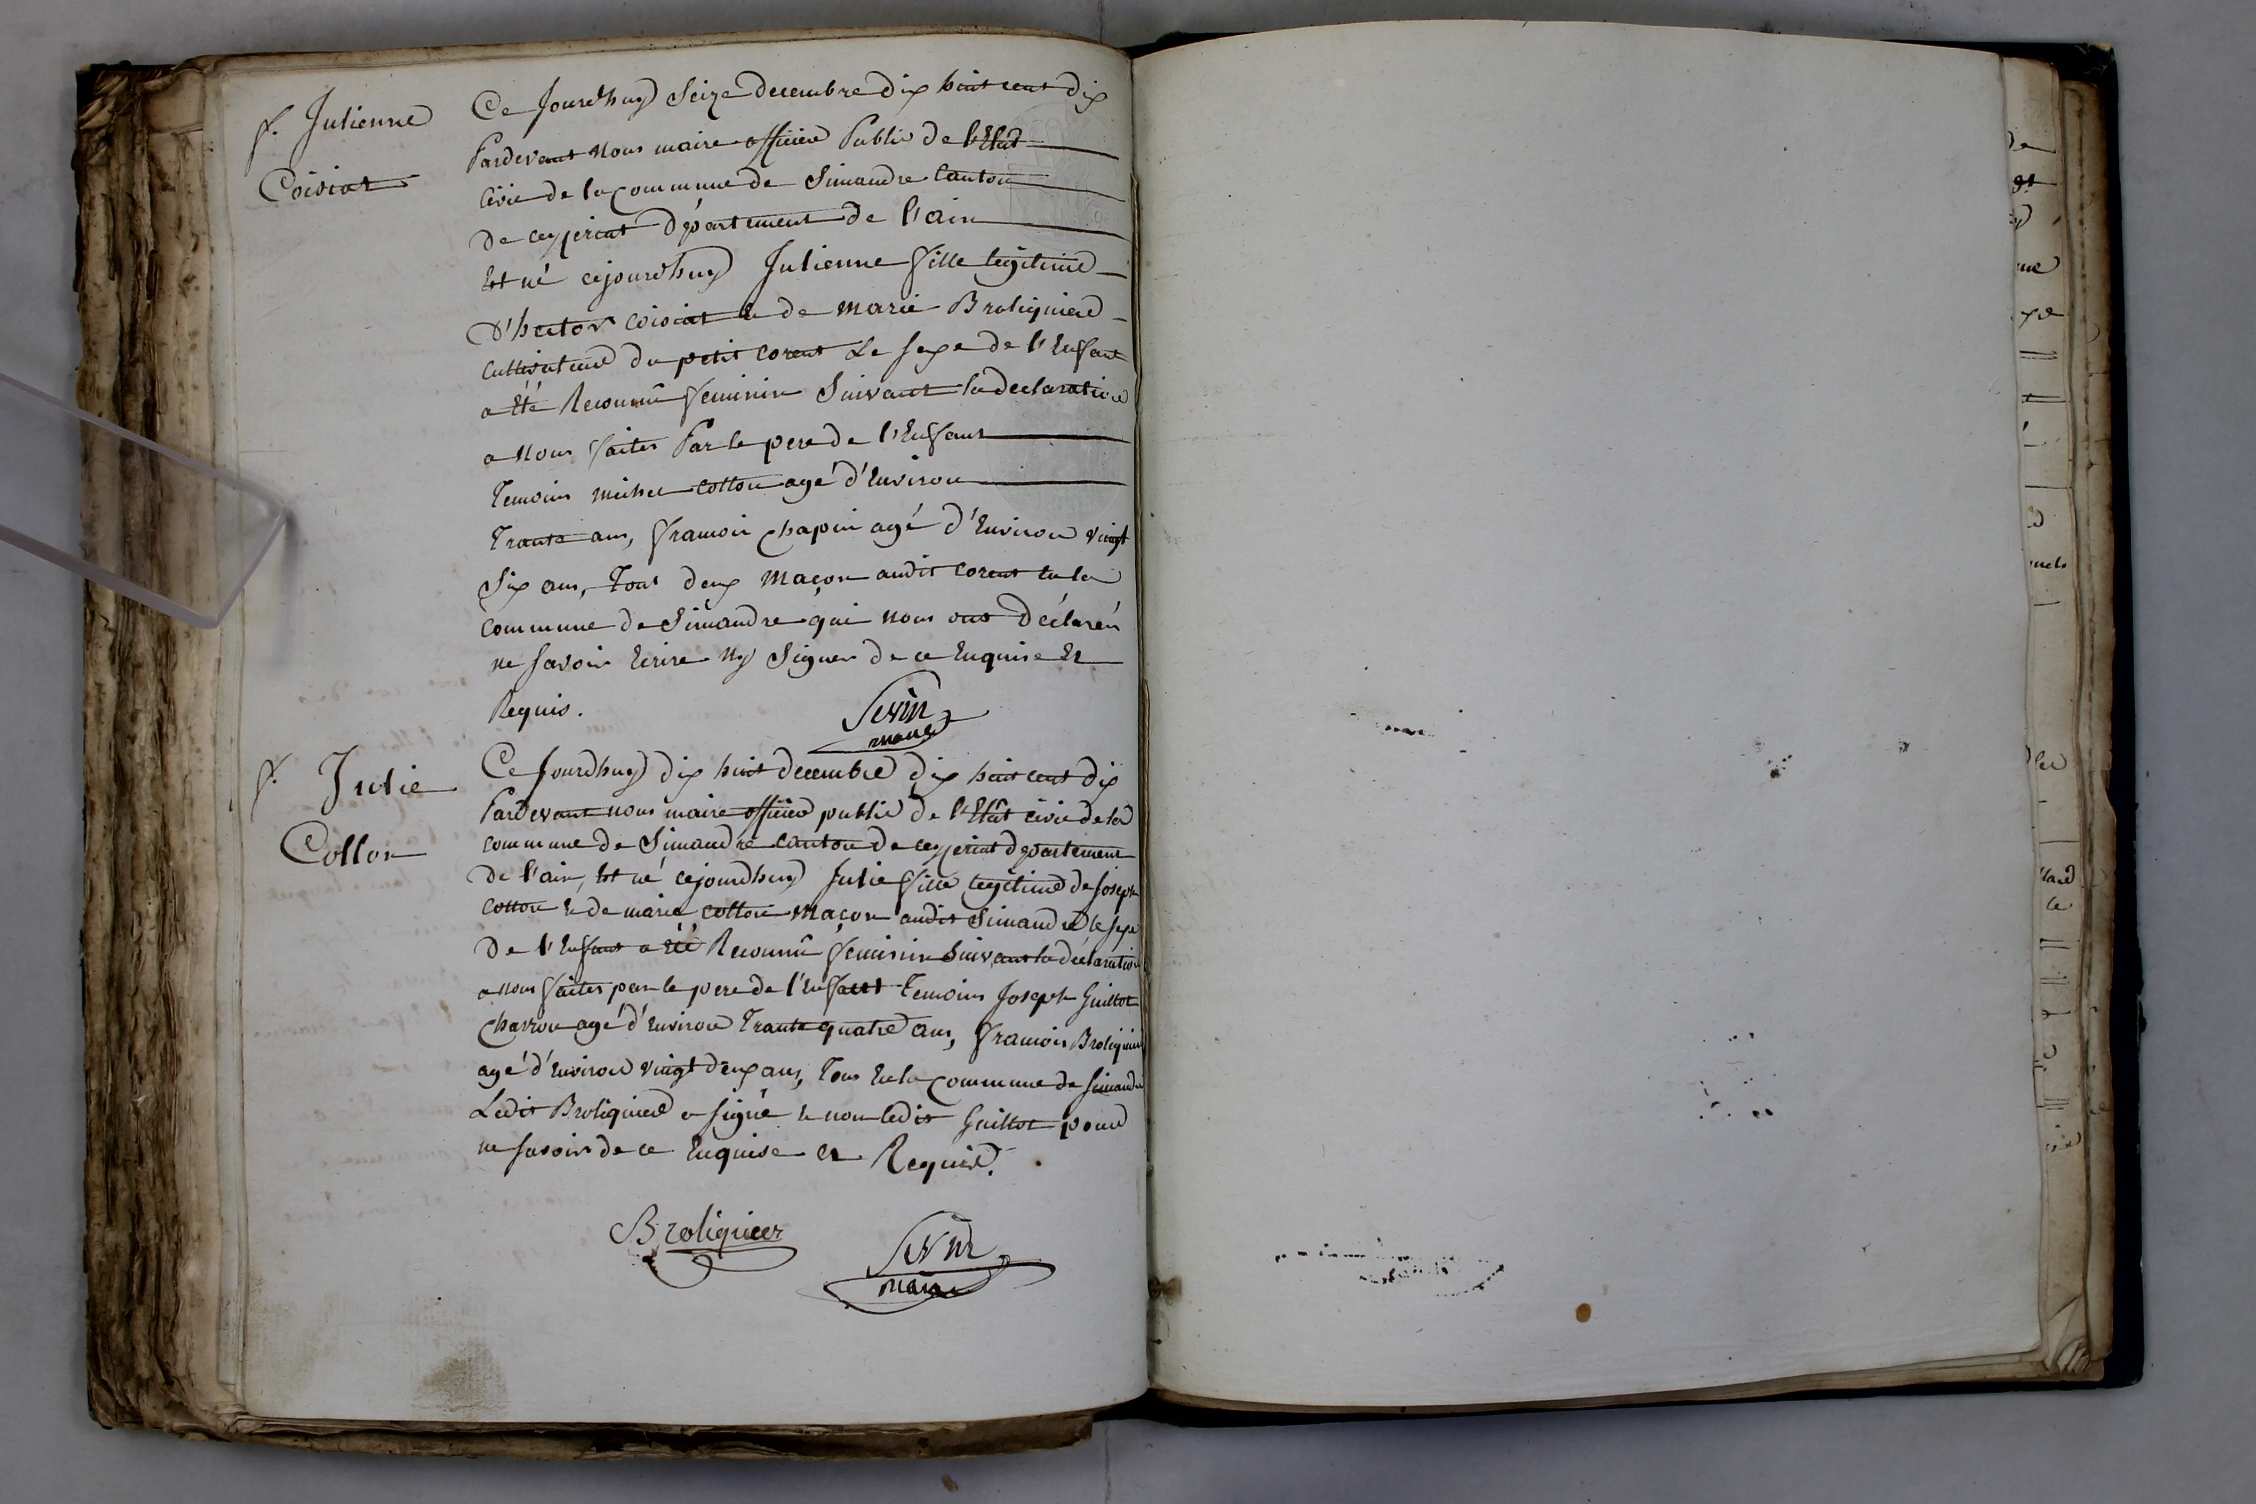 f. Julienne
Coiciat
Ce Jourd'huy Seize decembre dix huit cent dix
Pardevant Nous maire officier Public de l'Etât
Civic de la Commune de Simandre Canton
de ceyzeriat département de l'ain
Est né cejourd'huy Julienne fille legitime
D'hector coiciat & de marie Broliquier
Cultivateur du petit corent Le sexe de l'Enfant
a été Reconnû feminin Suivant la declaration
a Nous faites Par le pere de l'Enfant
Temoins michel cotton agé d'Environ
Trante ans, francois chapuis agé d'Environ vingt
Six ans, Tout deux Maçon audit corent en la
Commune de Simandre qui nous ont Déclarés
ne savoir Ecrire Ny Signer de ce Enquise Et
Requis.
Sevin
maire
f. Julie
Cotton
Ce Jourdhuy dix huit decembre dix huit cent dix
Pardevant nous maire officier public de l'Etât civic de la
commune de Simandre Canton de ceyzeriat département
de l'ain, Est né cejourdhuy Julie fille legitime de Joseph
cotton & de marie cotton Maçon audit Simandre le sexe
De l'Enfant a été Reconnû feminin Suivant la déclaration
a nous faites par le pere de l'Enfant Temoins Joseph Guillot
Charron agé d'Environ Trante quatre ans, francois Broliquier
agé d'Environ vingt deux ans, Tous En la Commune de Simandre
Ledit Broliquier a signé & non ledit Guillot pour
ne savoir de ce Enquise et Requis.
Broliquier
Sevin
maire